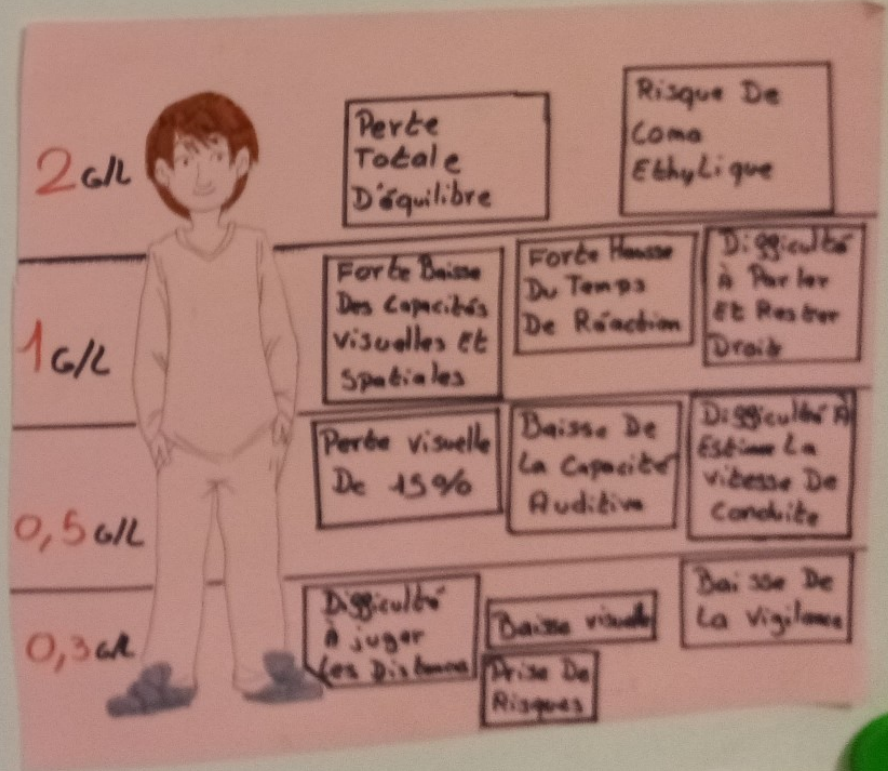 2 G/L
Perte
Totale
D'équilibre
Risque De
Coma
Ethylique
1 G/L
Forte Baisse
Des Capacités
Visuelles Et
Spatiales
Forte Hausse
Du Temps
De Réaction
Difficulté
À Parler
Et Rester
Droit
0,5 G/L
Perte visuelle
De 15%
Baisse De
La Capacité
Auditive
Difficulté À
Estimer La
Vitesse De
Conduite
0,3 G/L
Difficulté
À juger
Les Distances
Baisse visuelle
Prise De
Risques
Baisse De
La Vigilance